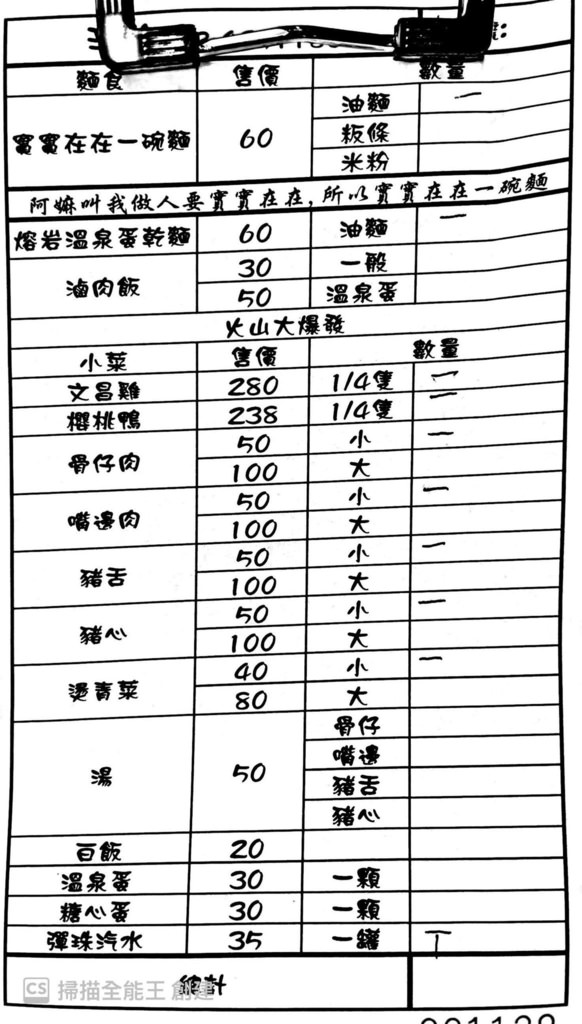 麵食 售價 數量
實實在在一碗麵 60 油麵 一
粄條
米粉
阿嫲叫我做人要實實在在,所以實實在在一碗麵
熔岩溫泉蛋乾麵 60 油麵 一
滷肉飯 30 一般
50 溫泉蛋
火山大爆發
小菜 售價 數量
文昌雞 280 1/4隻 一
櫻桃鴨 238 1/4隻 一
骨仔肉 50 小 一
100 大
嘴邊肉 50 小 一
100 大
豬舌 50 小 一
100 大
豬心 50 小 一
100 大
燙青菜 40 小 一
80 大
湯 50 骨仔
嘴邊
豬舌
豬心
白飯 20
溫泉蛋 30 一顆
糖心蛋 30 一顆
彈珠汽水 35 一罐 丅
總計
CS 掃描全能王 創建